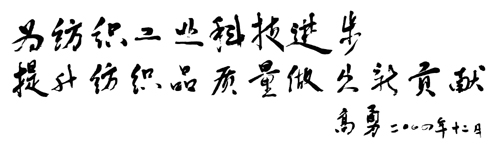 为纺织工业科技进步
提升纺织品质量做出新贡献
高勇 二〇〇四年十二月